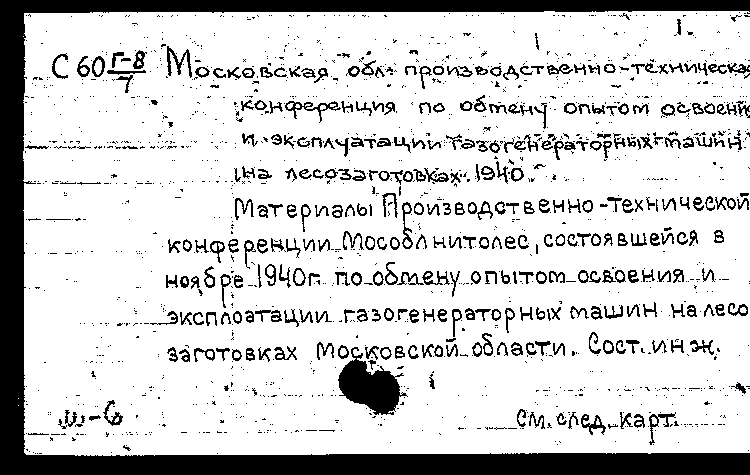 С 60 Г-8/7 Московская обл. производственно-техническая
конференция по обмену опытом освоени
и эксплуатации газогенераторных машин
на лесозаготовках. 1940.
Материалы Производственно-технической
конференции Мособлнитолес, состоявшейся в
ноябре 1940г. по обмену опытом освоения и
эксплоатации газогенераторных машин на лесо
заготовках Московской области. Сост. инж.
ш-6
См. след. карт.